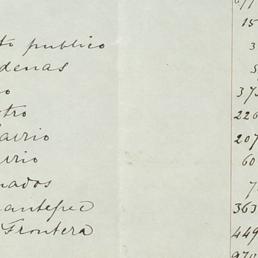 to publico
denas
o
tro
arrio
urio
nados
antepec
Frontera
15
3
5
373
226
207
60
7
363
449
970